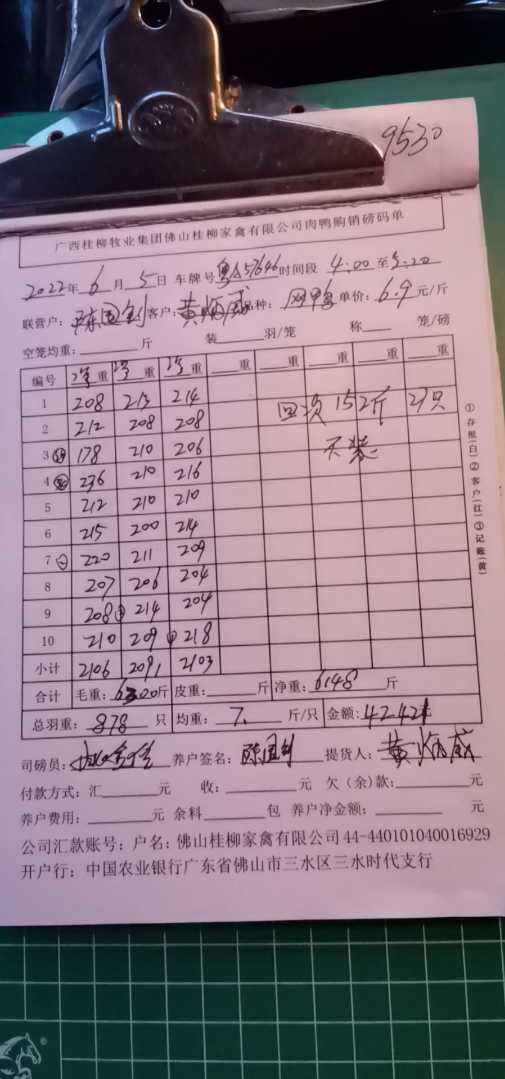 9530
广西桂柳牧业集团佛山桂柳家禽有限公司肉鸭购销磅码单
2022年 6 月 5 日 车牌号 粤 57646 时间段 4:00 至 5:20
联营户： 陈国钊 客户： 黄炳威 品种： 网鸭 单价： 6.9 元/斤
空笼均重： 斤 装 羽/笼 称 笼/磅
编号 重 重 重 重 重 重 重 重
1 208 213 214 回次 152斤 27只
2 212 208 208
3 178 210 206 不装
4 236 210 216
5 212 210 210
6 215 200 214
7 220 211 209
8 207 206 204
9 208 214 204
10 210 209 218
小计 2106 2091 2103
合计 毛重： 6300 斤 皮重： 斤 净重： 6148 斤
总羽重： 878 只 均重： 7. 斤/只 金额： 42421
司磅员： 养户签名： 陈国钊 提货人： 黄炳威
付款方式：汇 元 收： 元 欠（余）款： 元
养户费用： 元 余料 包 养户净金额： 元
公司汇款账号：户名：佛山桂柳家禽有限公司 44-440101040016929
开户行：中国农业银行广东省佛山市三水区三水时代支行
①存根(白)②客户(红)③记账(黄)